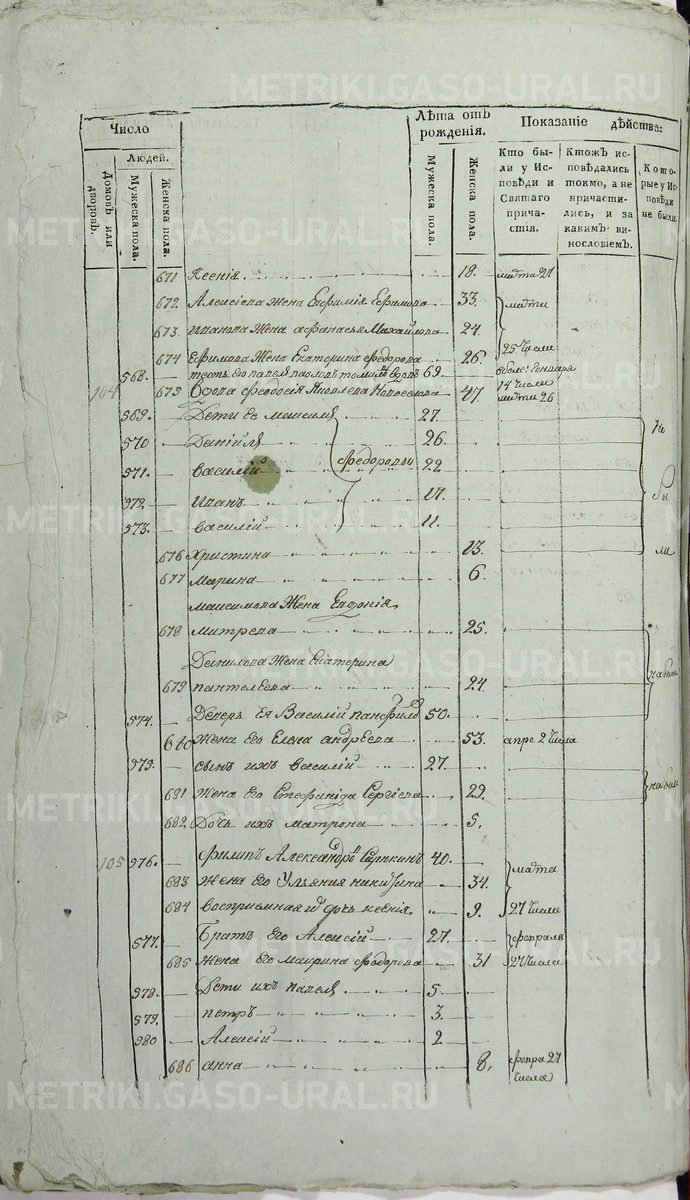 METRIKI.GASO-URAL.RU
Число
Лѣта отъ рожденія.
Показаніе дѣйства:
Людей.
Домовъ или дворовъ.
Мужеска пола.
Женска пола.
Мужеска пола.
Женска пола.
Кто были у Исповѣди и Святаго причастія.
Ктожъ исповѣдались токмо, а не причастились, и за какимъ винословіемъ.
Которые у Исповѣди не были.
671 Ксенія 18. марта 27
672 Алексіева жена Евфимія Ефимова 33. марта
673. Иванова жена Афанасья Михайлова 24
25 числа
674 Ефимова жена Екатерина Федорова 26.
568. тесть его Павелъ вдовъ 69. Генваря 14 числа
104 675 Вдова Феодосія Яковлева 47 марта 26
569. Дети ее Максимъ 27.
570 Даніилъ 26.
571. Василій Федоровы 22
572. Иванъ 17.
573. Василій 11.
676 Христина 13.
677 Марина 6.
Не бы ли
Максимова жена Евдокія
678 Митрева 25.
Данилова жена Екатерина
679 Пантелеева 24.
574. Деверь ея Василій Панфилов 50.
680 Жена его Елена Андреева 53. апре 2 числа
575. сынъ ихъ Василій 27.
681 Жена его Стефанида Сергіева 29.
682 Дочь ихъ Матрона 5.
105 576. Филипъ Александровъ 40. марта
683 Жена его Ульяния Никитина 34.
684 дочь Ксенія 9. 27 числа
577. Братъ его Алексій 27. февраля
685 Жена его Марина Федорова 31 27 числа
578. Дети ихъ Павелъ 5.
579. Петръ 3.
580 Алексій 2
686 Анна 8. февра 27 числа